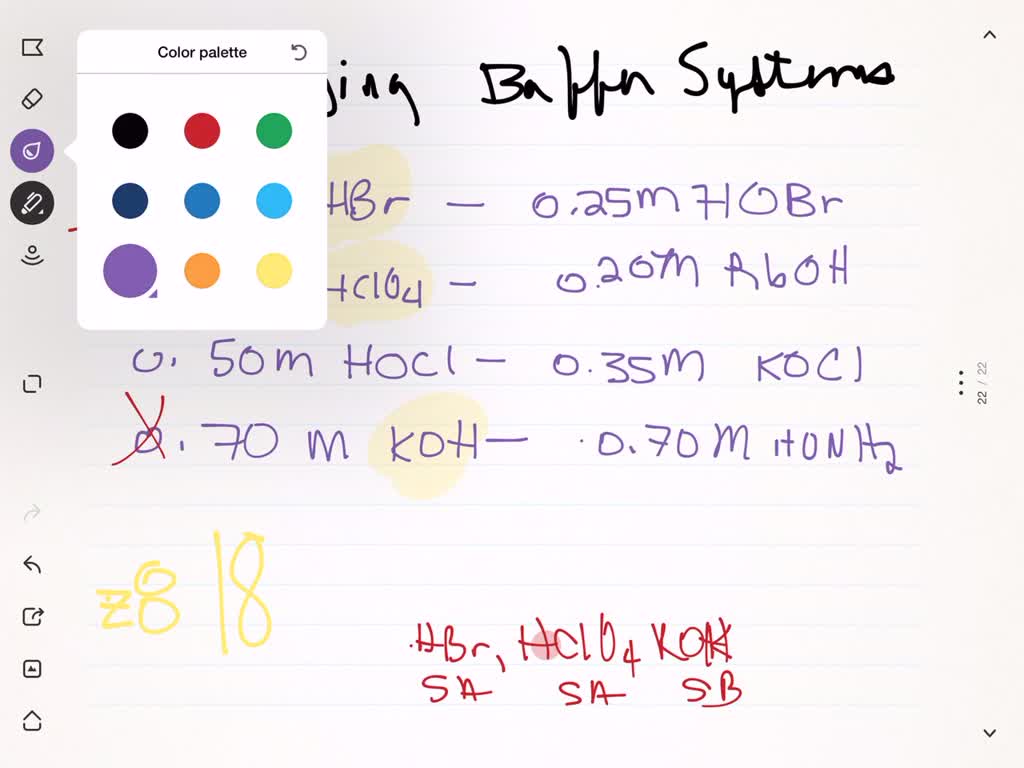 Color palette
ging Buffer Systems
HBr — 0.25M HOBr
HClO4 — 0.20M RbOH
0.50m HOCl — 0.35M KOCl
0.70 m KOH — 0.70M HONH2
22 / 22
z8 18
HBr, HClO4 KOH
SA SA SB